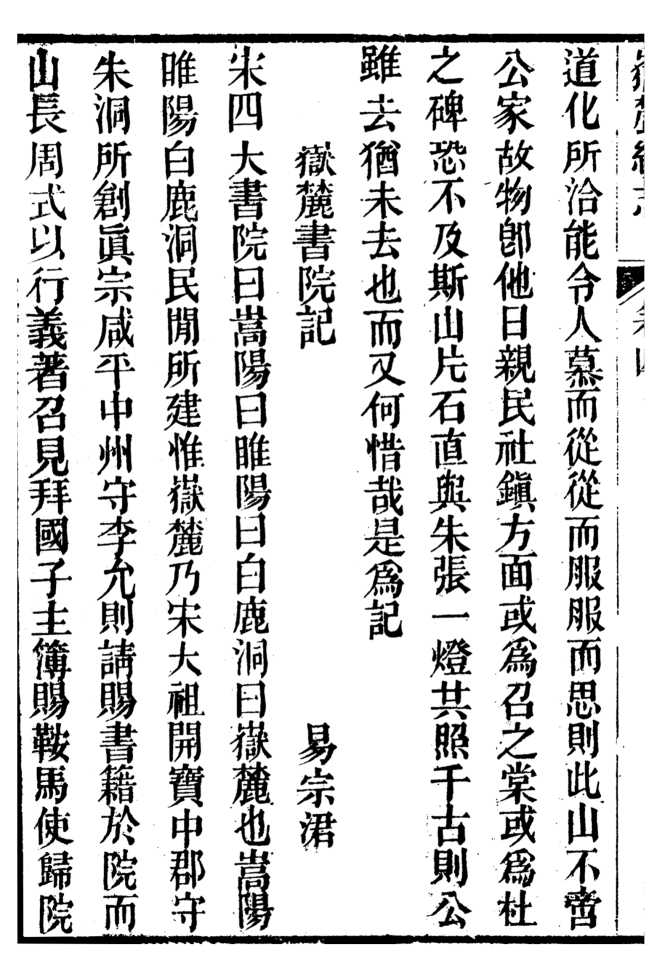 道化所洽能令人慕而從從而服服而思則此山不啻
公家故物卽他日親民社鎭方面或爲召之棠或爲杜
之碑恐不及斯山片石直與朱張一燈共照千古則公
雖去猶未去也而又何惜哉是爲記
嶽麓書院記　易宗涒
宋四大書院曰嵩陽曰睢陽曰白鹿洞曰嶽麓也嵩陽
睢陽白鹿洞民閒所建惟嶽麓乃宋大祖開寶中郡守
朱洞所創眞宗咸平中州守李允則請賜書籍於院而
山長周式以行義著召見拜國子主簿賜鞍馬使歸院